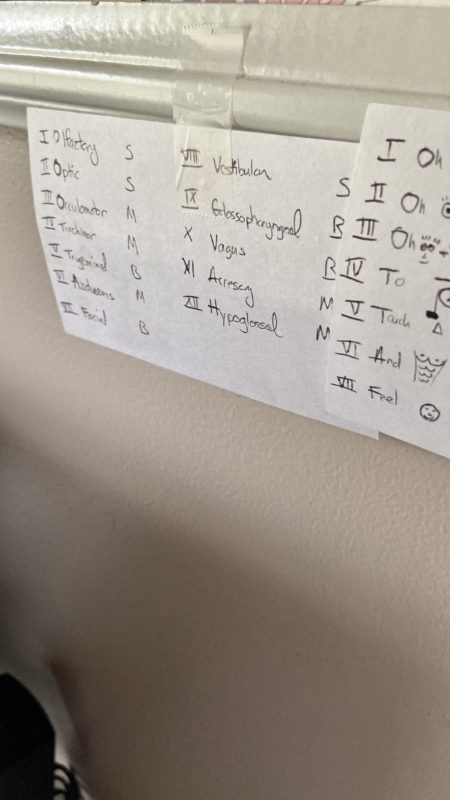 I Olfactory S
II Optic S
III Occulomotor M
IV Trochlear M
V Trigeminal B
VI Abducens M
VII Facial B
VIII Vestibular S
IX Glossopharyngeal B
X Vagus B
XI Accessory M
XII Hypoglossal M
I Oh
II Oh
III Oh
IV To
V Touch
VI And
VII Feel